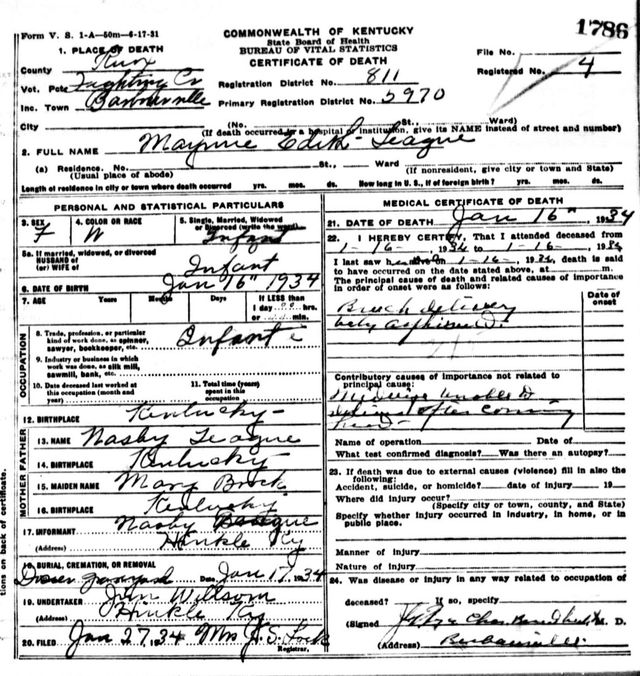 Form V. S. 1-A—50m—6-17-31
1786
COMMONWEALTH OF KENTUCKY
State Board of Health
BUREAU OF VITAL STATISTICS
CERTIFICATE OF DEATH
File No.
Registered No. 4
1. PLACE OF DEATH
County Knox
Vot. Pct. Fighting Cr
Inc. Town
Registration District No. 811
Primary Registration District No. 5970
City (No. St., Ward)
(If death occurred in a hospital or institution, give its NAME instead of street and number)
2. FULL NAME Edith League
(a) Residence. No. St., Ward
(Usual place of abode) (If nonresident, give city or town and State)
Length of residence in city or town where death occurred yrs. mos. ds. How long in U. S., if of foreign birth? yrs. mos. ds.
PERSONAL AND STATISTICAL PARTICULARS
3. SEX 4. COLOR OR RACE 5. Single, Married, Widowed
or Divorced (write the word)
F W Infant
5a. If married, widowed, or divorced
HUSBAND of
(or) WIFE of Infant
6. DATE OF BIRTH Jan 16" 1934
7. AGE Years Months Days If LESS than
1 day hrs.
or min.
OCCUPATION
8. Trade, profession, or particular
kind of work done, as spinner,
sawyer, bookkeeper, etc. Infant
9. Industry or business in which
work was done, as silk mill,
sawmill, bank, etc.
10. Date deceased last worked at
this occupation (month and
year)
11. Total time (years)
spent in this
occupation
12. BIRTHPLACE Kentucky
FATHER
13. NAME Nasby League
14. BIRTHPLACE Kentucky
MOTHER
15. MAIDEN NAME Mary Brock
16. BIRTHPLACE Kentucky
17. INFORMANT Nasby League
(Address) Hinkle Ky
18. BURIAL, CREMATION, OR REMOVAL
Date Jan 17, 34
19. UNDERTAKER John Willson
(Address) Hinkle Ky
20. FILED Jan 27, 34 Mrs J. S. Lock
Registrar.
MEDICAL CERTIFICATE OF DEATH
21. DATE OF DEATH Jan 16" 1934
22. I HEREBY CERTIFY, That I attended deceased from
1-16-, 1934 to 1-16-, 1934
I last saw h alive on 1-16-, 1934, death is said
to have occurred on the date stated above, at m.
The principal cause of death and related causes of importance
in order of onset were as follows:
Date of
onset
Breech delivery
Contributory causes of importance not related to
principal cause:
after coming
head
Name of operation Date of
What test confirmed diagnosis? Was there an autopsy?
23. If death was due to external causes (violence) fill in also the
following:
Accident, suicide, or homicide? date of injury 19
Where did injury occur?
(Specify city or town, county, and State)
Specify whether injury occurred in industry, in home, or in
public place.
Manner of injury
Nature of injury
24. Was disease or injury in any way related to occupation of
deceased? If so, specify
(Signed) M. D.
(Address)
tions on back of certificate.